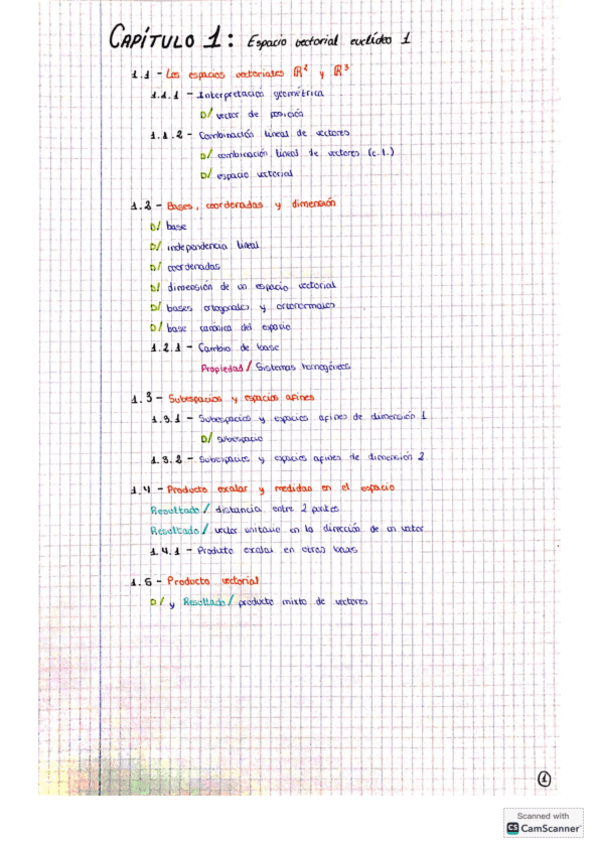 CAPÍTULO 1: Espacio vectorial euclídeo 1
1.1 - Los espacios vectoriales ℝ² y ℝ³
1.1.1 - Interpretació geométrica
D/ vector de posición
1.1.2 - Combinación lineal de vectores
D/ combinación lineal de vectores (c.l.)
D/ espacio vectorial
1.2 - Bases, coordenadas y dimensión
D/ base
D/ independencia lineal
D/ coordenadas
D/ dimensión de un espacio vectorial
D/ bases ortogonales y ortonormales
D/ base canónica del espacio
1.2.1 - Cambio de base
Propiedad/ Sistemas homogéneos
1.3 - Subespacios y espacios afines
1.3.1 - Subespacios y espacios afines de dimensión 1
D/ subespacio
1.3.2 - Subespacios y espacios afines de dimensión 2
1.4 - Producto escalar y medidas en el espacio
Resultado/ distancia entre 2 puntos
Resultado/ vector unitario en la dirección de un vector
1.4.1 - Producto escalar en otras bases
1.5 - Producto vectorial
D/ y Resultado/ producto mixto de vectores
1
Scanned with
CS CamScanner